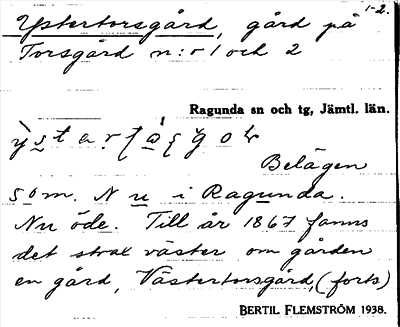 1-2.
Ystertorsgård, gård på
Torsgård n:o 1 och 2
Ragunda sn och tg, Jämtl. län.
Belägen
som. N u i Ragunda.
Nu öde. Till år 1867 fanns
det strax väster om gården
en gård, Västertorsgård, (forts)
BERTIL FLEMSTRÖM 1938.